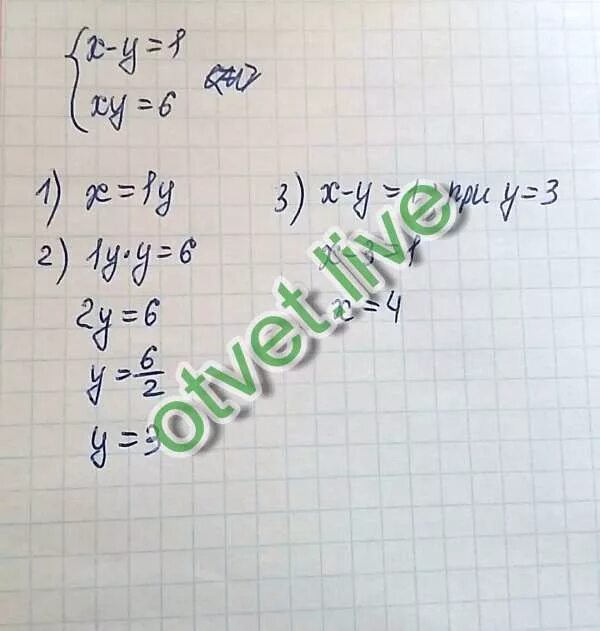 x-y=1
xy=6
1) x=1y
2) 1y·y=6
2y=6
y=6/2
y=3
3) x-y=1 при y=3
x-3=1
x=4
otvet.live